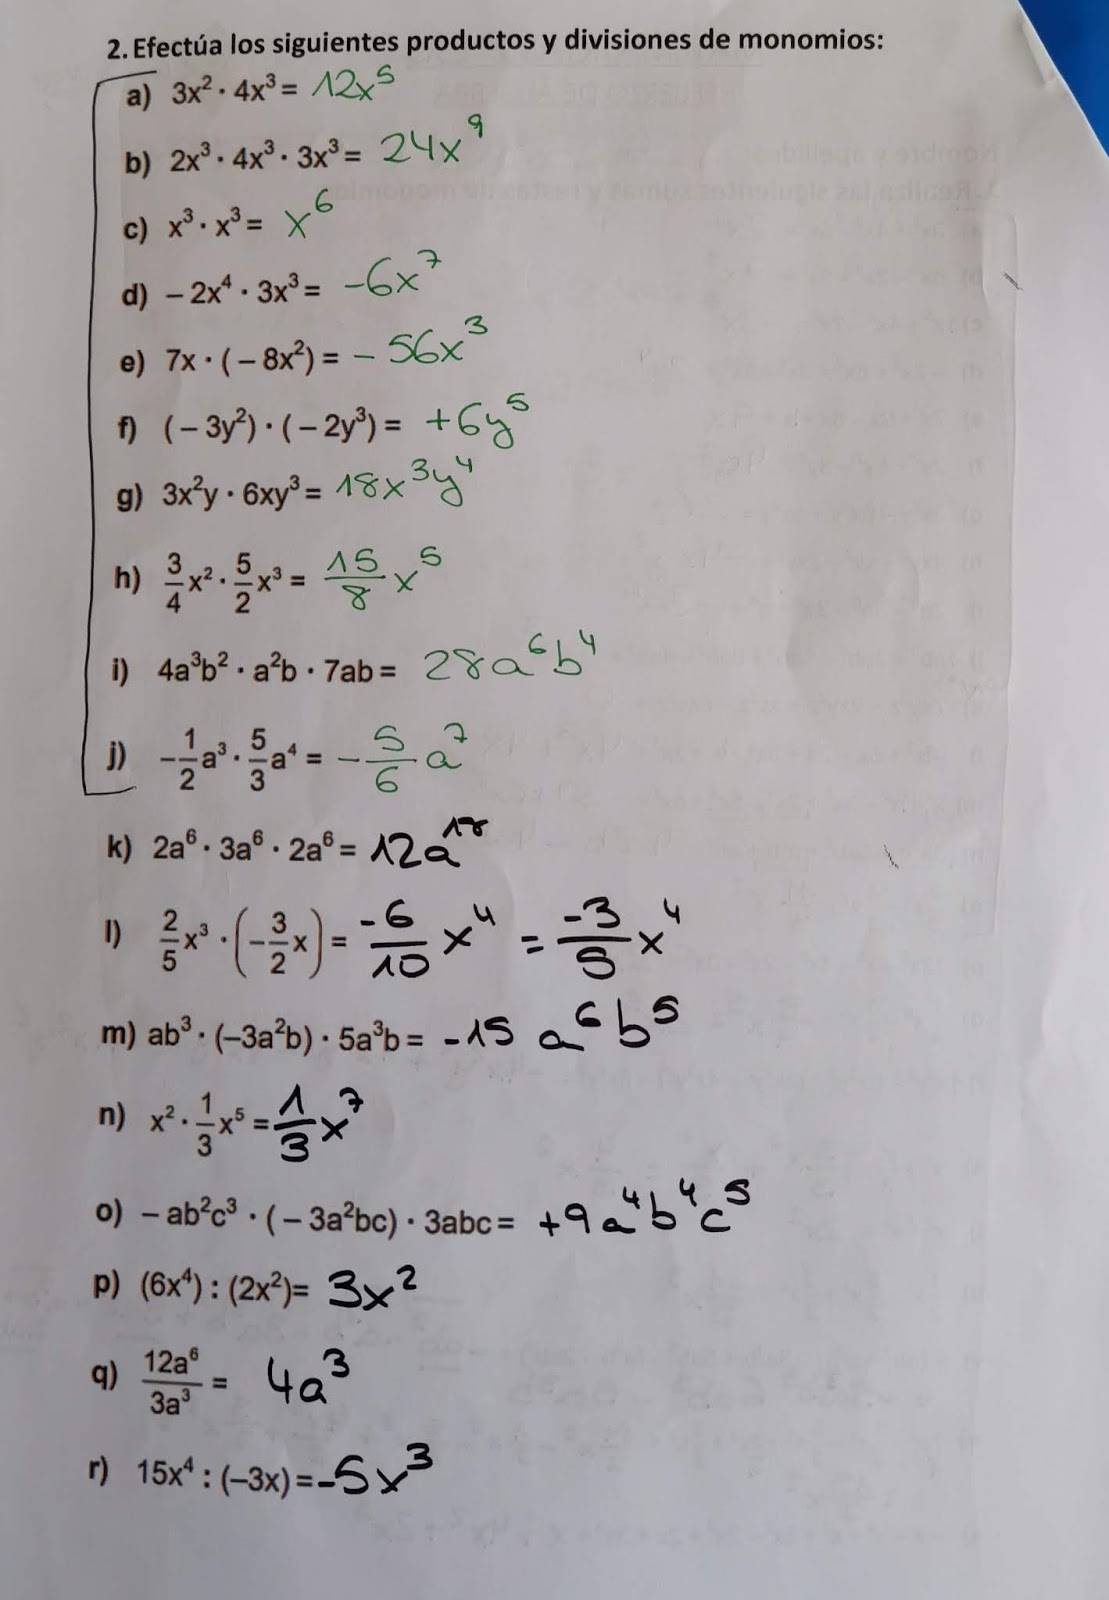 2. Efectúa los siguientes productos y divisiones de monomios:
a) 3x² · 4x³ = 12x⁵
b) 2x³ · 4x³ · 3x³ = 24x⁹
c) x³ · x³ = x⁶
d) – 2x⁴ · 3x³ = -6x⁷
e) 7x · (– 8x²) = - 56x³
f) (– 3y²) · (– 2y³) = +6y⁵
g) 3x²y · 6xy³ = 18x³y⁴
h) 3/4 x² · 5/2 x³ = 15/8 x⁵
i) 4a³b² · a²b · 7ab = 28a⁶b⁴
j) -1/2 a³ · 5/3 a⁴ = - 5/6 a⁷
k) 2a⁶ · 3a⁶ · 2a⁶ = 12a¹⁸
l) 2/5 x³ · (-3/2 x) = -6/10 x⁴ = -3/5 x⁴
m) ab³ · (–3a²b) · 5a³b = -15 a⁶b⁵
n) x² · 1/3 x⁵ = 1/3 x⁷
o) – ab²c³ · (– 3a²bc) · 3abc = +9a⁴b⁴c⁵
p) (6x⁴) : (2x²)= 3x²
q) 12a⁶/3a³ = 4a³
r) 15x⁴ : (–3x) = -5x³